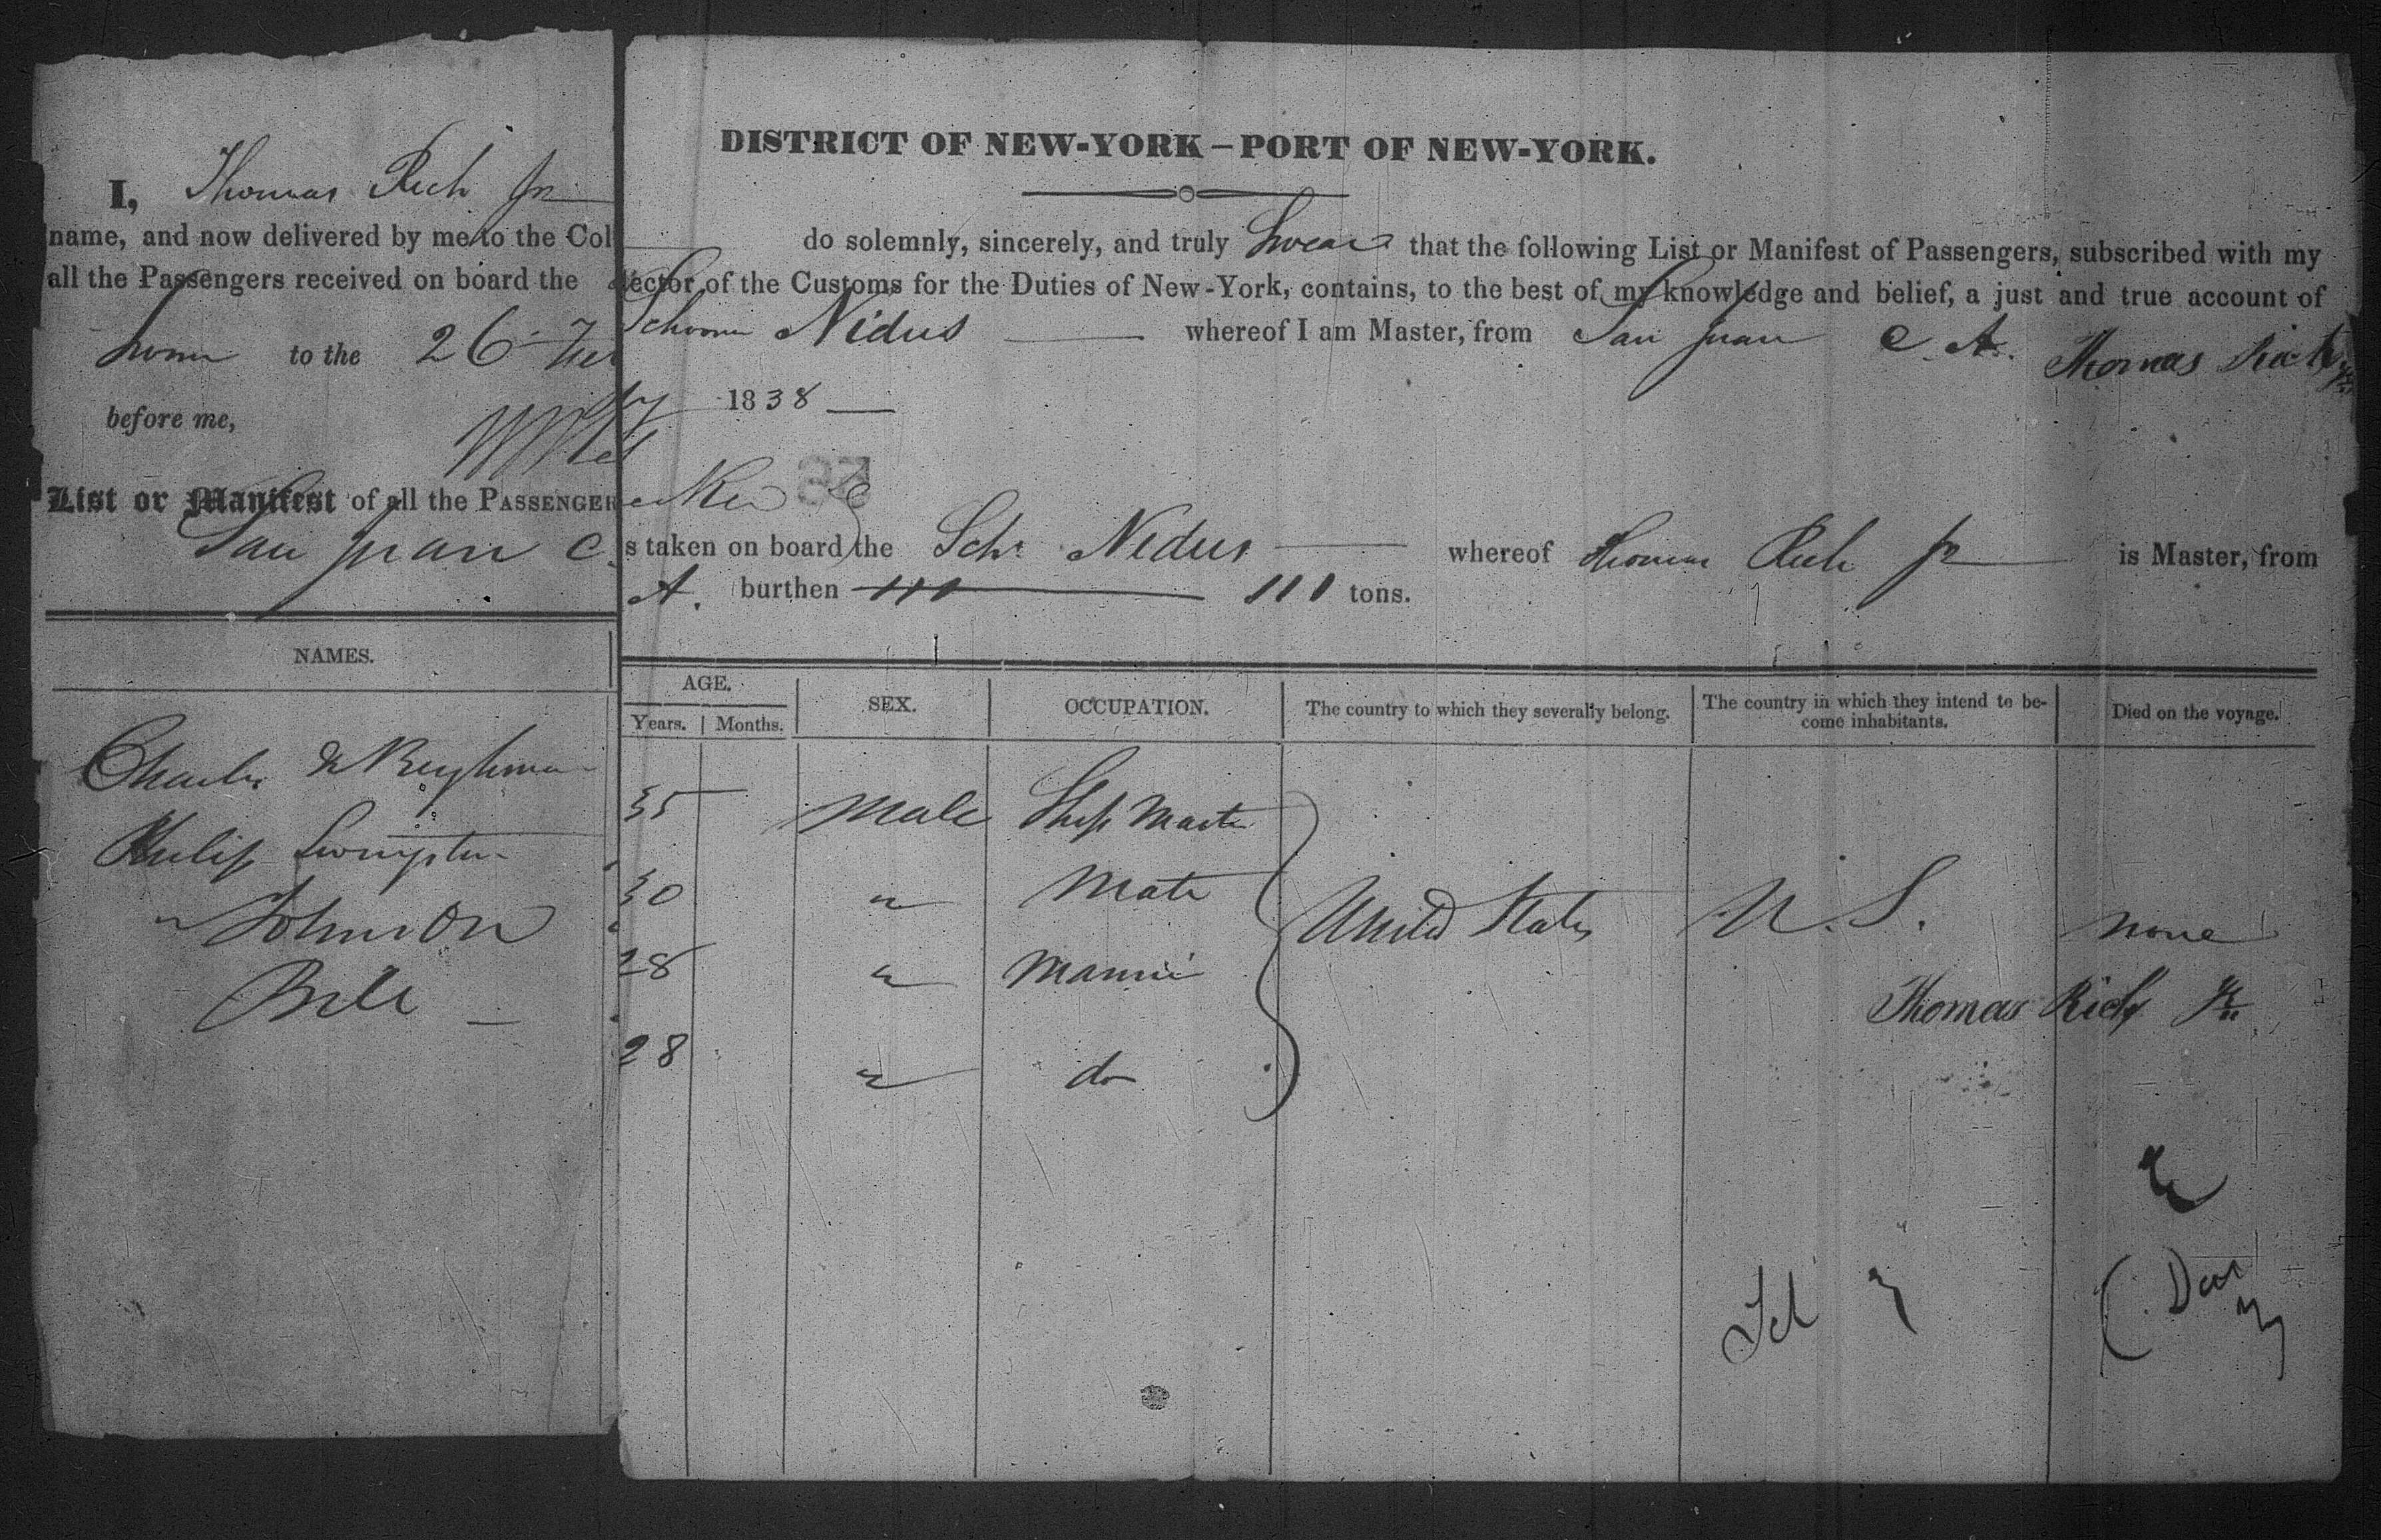 DISTRICT OF NEW-YORK – PORT OF NEW-YORK.
I, Thomas Rich Jr do solemnly, sincerely, and truly Swear that the following List or Manifest of Passengers, subscribed with my
name, and now delivered by me to the Collector of the Customs for the Duties of New-York, contains, to the best of my knowledge and belief, a just and true account of
all the Passengers received on board the Schooner Nidus whereof I am Master, from San Juan C. A.
Sworn to the 26 1838 Thomas Rich Jr
before me,
List or Manifest of all the PASSENGERS taken on board the Schr Nidus whereof Thomas Rich Jr is Master, from
San Juan C. A. burthen 110 110 tons.
NAMES. AGE. SEX. OCCUPATION. The country to which they severally belong. The country in which they intend to be- Died on the voyage.
Years. Months. come inhabitants.
Charles 35 Male Ship Master
Philip Livingston 30 " Mate
" Johnson 28 " Marine United States U. S. none
Bell 28 " do
Thomas Rich Jr